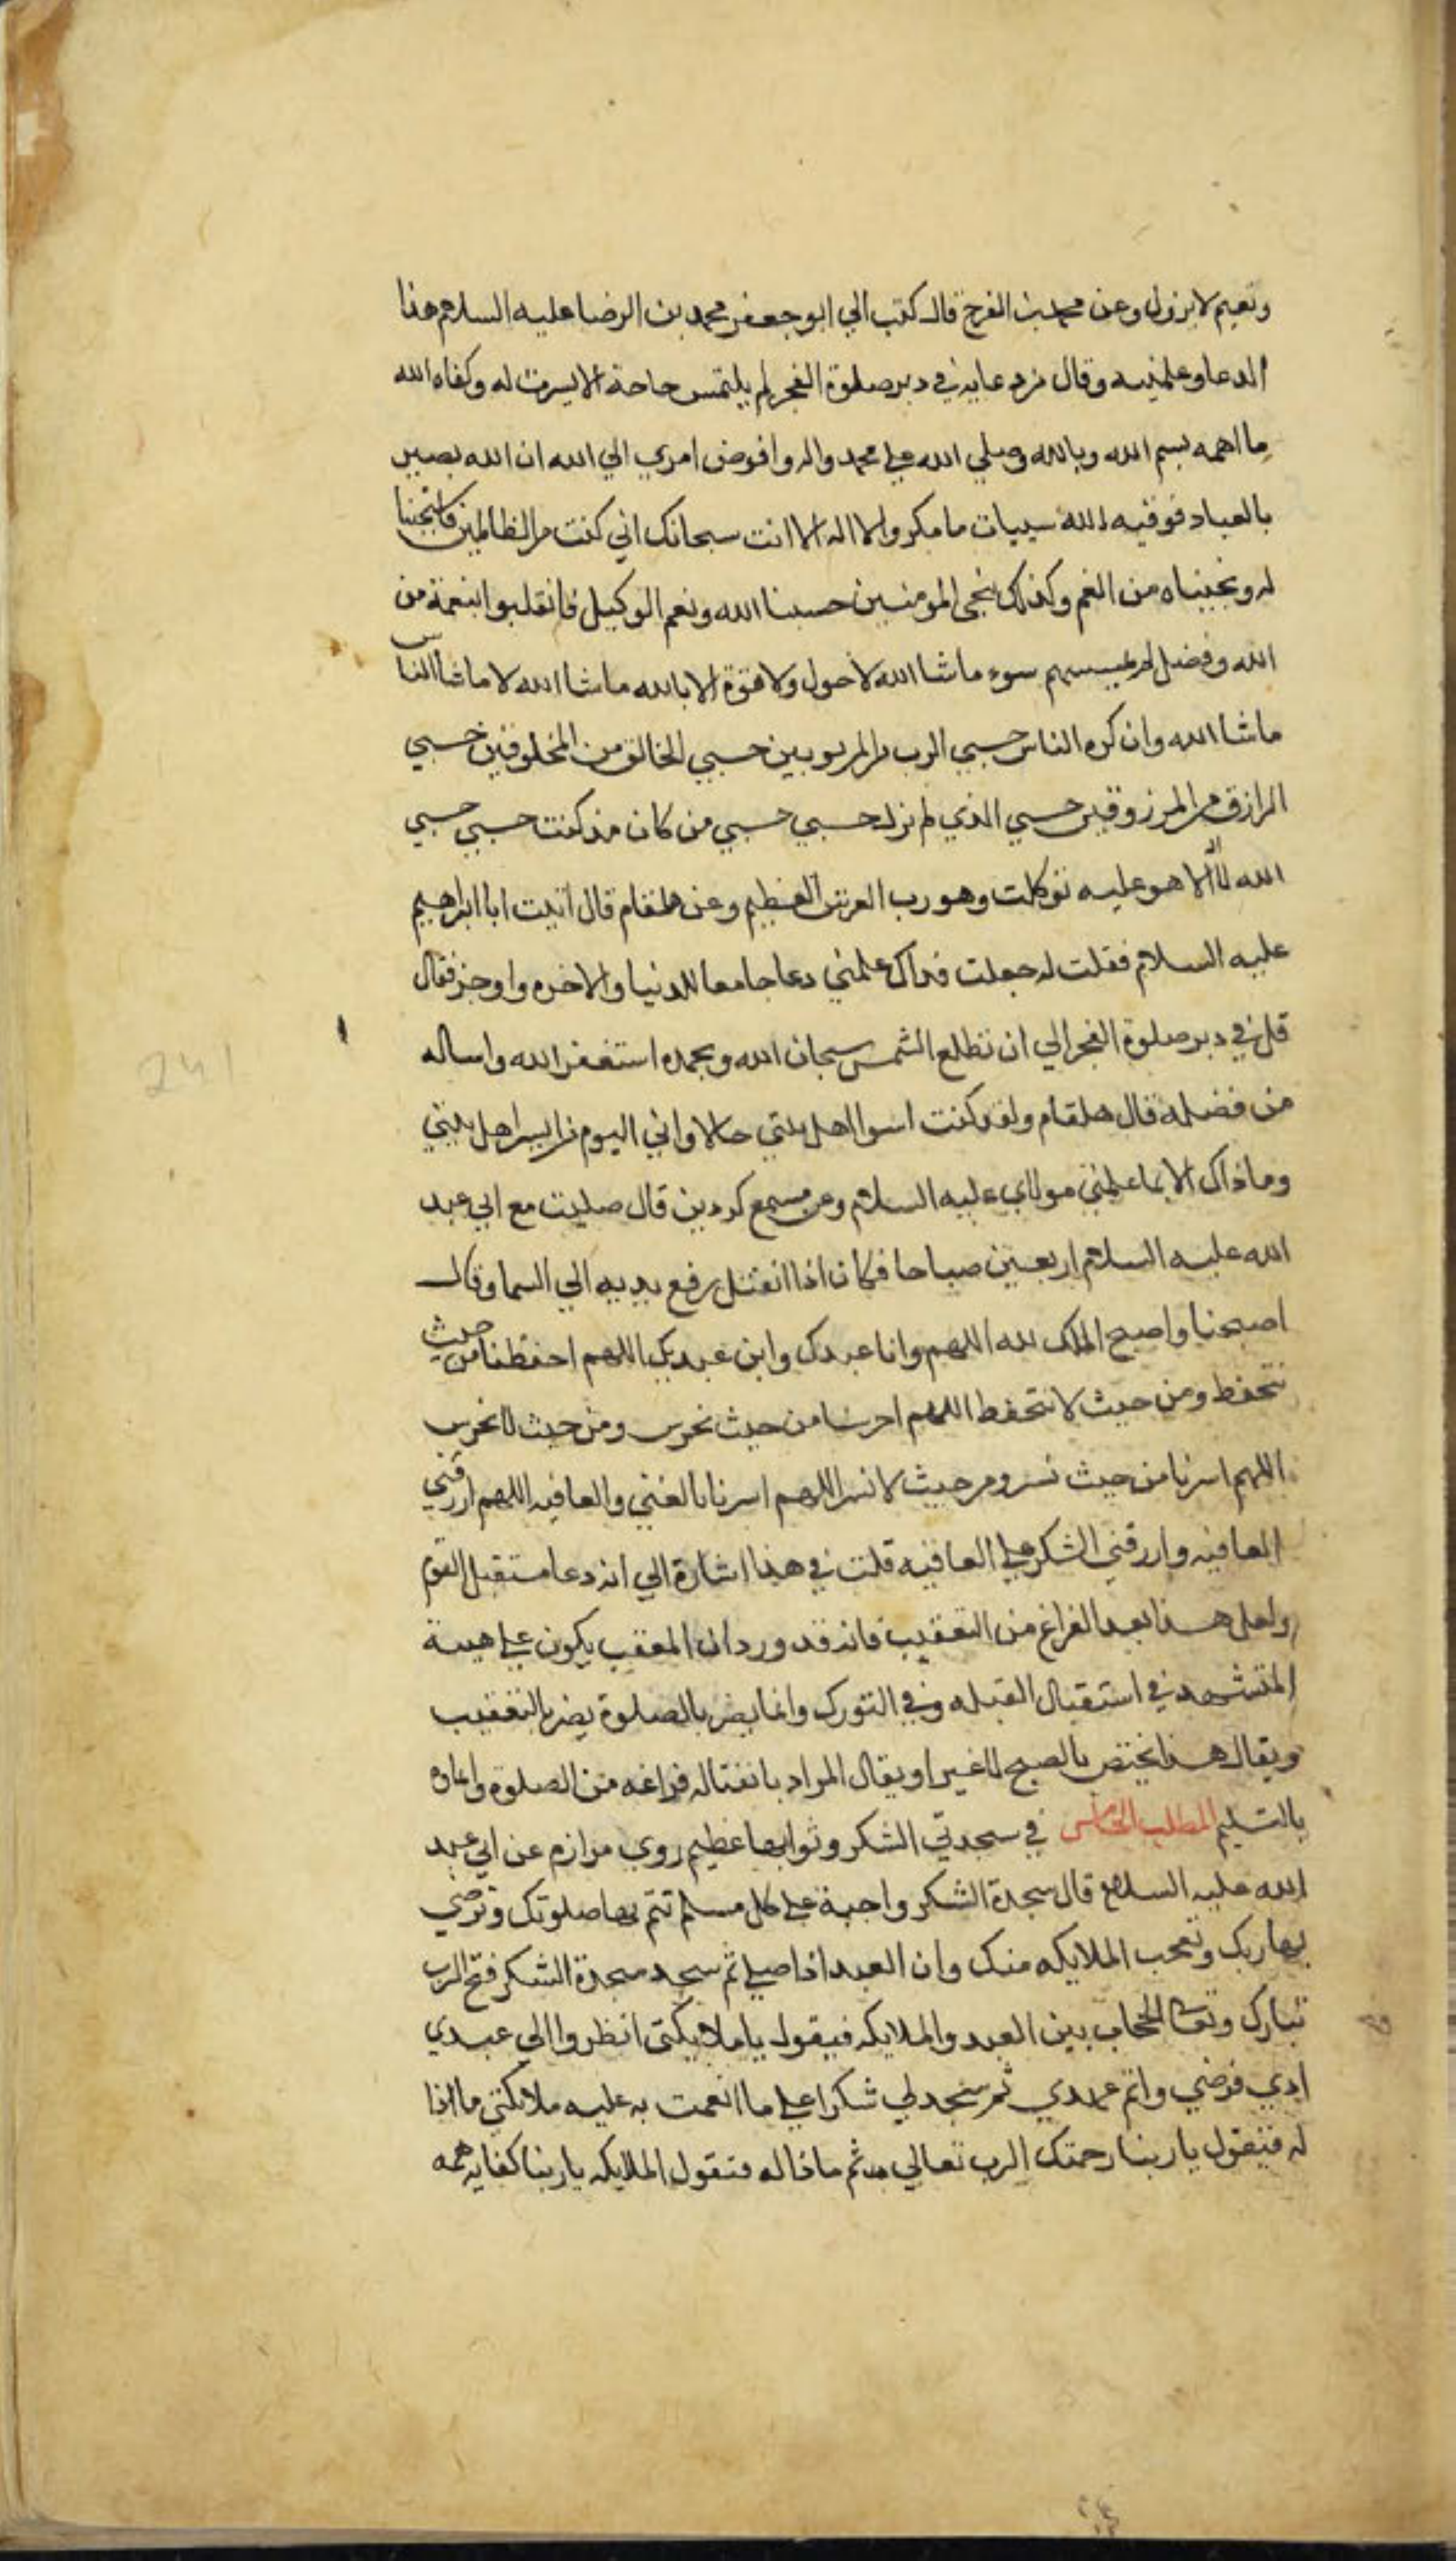 ونعيم لا يزول وعن محمد بن الفرج قال كتب الي ابو جعفر محمد بن الرضا عليه السلام هذا
الدعا وعلمنيه وقال من دعا به في دبر صلوة الفجر لم يلتمس حاجة الا يسرت له وكفاه الله
ما اهمه بسم الله وبالله وصلي الله علي محمد واله وافوض امري الي الله ان الله بصير
بالعباد فوقيه الله سييات ما مكروا لا اله الا انت سبحانك اني كنت من الظالمين فاستجبنا
له ونجيناه من الغم وكذلك ننجي المومنين حسبنا الله ونعم الوكيل فانقلبوا بنعمة من
الله وفضل لم يمسسهم سوء ما شا الله لا حول ولا قوة الا بالله ما شا الله لا ما شا الناس
ما شا الله وان كره الناس حسبي الرب من المربوبين حسبي الخالق من المخلوقين حسبي
الرازق من المرزوقين حسبي الذي لم يزل حسبي حسبي من كان مذ كنت حسبي حسبي
الله لا اله الا هو عليه توكلت وهو رب العرش العظيم وعن هلقام قال اتيت ابا ابراهيم
عليه السلام فقلت له جعلت فداك علمني دعا جامعا للدنيا والاخره واوجز فقال
قل في دبر صلوة الفجر الي ان تطلع الشمس سبحان الله وبحمده استغفر الله واساله
من فضله قال هلقام ولقد كنت اسوا اهل بيتي حالا واني اليوم من ايسر اهل بيتي
وما ذاك الا بما علمني مولاي عليه السلام وعن مسمع كردين قال صليت مع ابي عبد
الله عليه السلام اربعين صباحا فكان اذا انفتل رفع يديه الي السما وقال
اصبحنا واصبح الملك لله اللهم وانا عبدك وابن عبديك اللهم احفظنا من حيث
نتحفظ ومن حيث لا نتحفظ اللهم احرسنا من حيث نحرس ومن حيث لا نحرس
اللهم استرنا من حيث نستر ومن حيث لا نستر اللهم استرنا بالغني والعافيه اللهم ارزقني
العافيه وارزقني الشكر علي العافيه قلت في هذا اشارة الي انه دعا مستقبل القوم
ولعل هذا بعد الفراغ من التعقيب فانه قد ورد ان المعقب يكون علي هيية
المتشهد في استقبال القبله وفي التورك وانما يضر بالصلوة يضر بالتعقيب
ويقال هذا يختص بالصبح لا غير او يقال المراد بانفتاله فراغه من الصلوة وايماؤه
بالتسليم المطلب الخامس في سجدتي الشكر وثوابها عظيم روي مرازم عن ابي عبد
الله عليه السلام قال سجدة الشكر واجبة علي كل مسلم تتم بها صلوتك وترضي
بها ربك وتعجب الملايكه منك وان العبد اذا صلي ثم سجد سجدة الشكر فتح الرب
تبارك وتعالي الحجاب بين العبد والملايكه فيقول يا ملايكتي انظروا الي عبدي
ادي فرضي واتم عهدي ثم سجد لي شكرا علي ما انعمت به عليه ملايكتي ماذا
له فتقول يا ربنا رحمتك الرب تعالي ثم ماذا له فتقول الملايكه يا ربنا كفاية همه
241